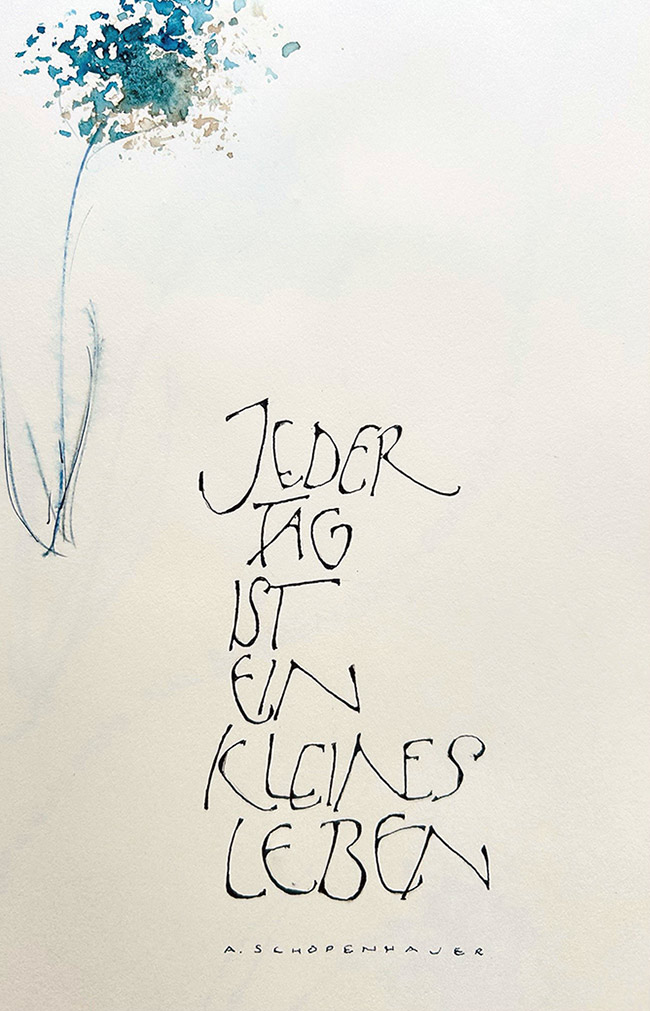 JEDER
TAG
IST
EIN
KLEINES
LEBEN
A. SCHOPENHAUER